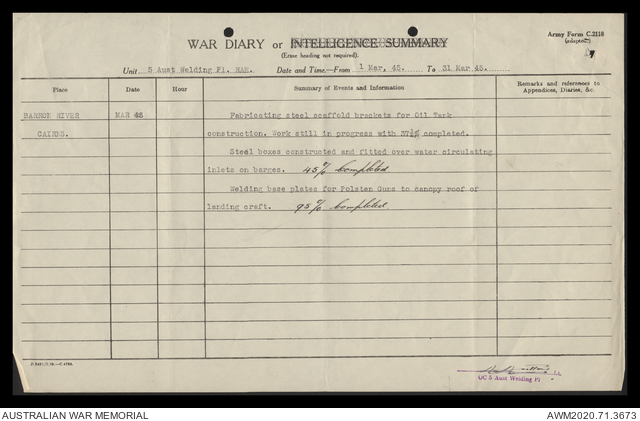 Army Form C.2118
(adapted)
WAR DIARY or INTELLIGENCE SUMMARY
(Erase heading not required).
Unit 5 Aust Welding Pl. RAE. Date and Time—From 1 Mar, 45. To 31 Mar 45.
Place Date Hour Summary of Events and Information Remarks and references to Appendices, Diaries, &c.
BARRON RIVER MAR 45 Fabricating steel scaffold brackets for Oil Tank
CAIRNS. construction. Work still in progress with 37½% completed.
Steel boxes constructed and fitted over water circulating
inlets on barges. 45% completed
Welding base plates for Polsten Guns to canopy roof of
landing craft. 95% completed
OC 5 Aust Welding Pl
AUSTRALIAN WAR MEMORIAL AWM2020.71.3673